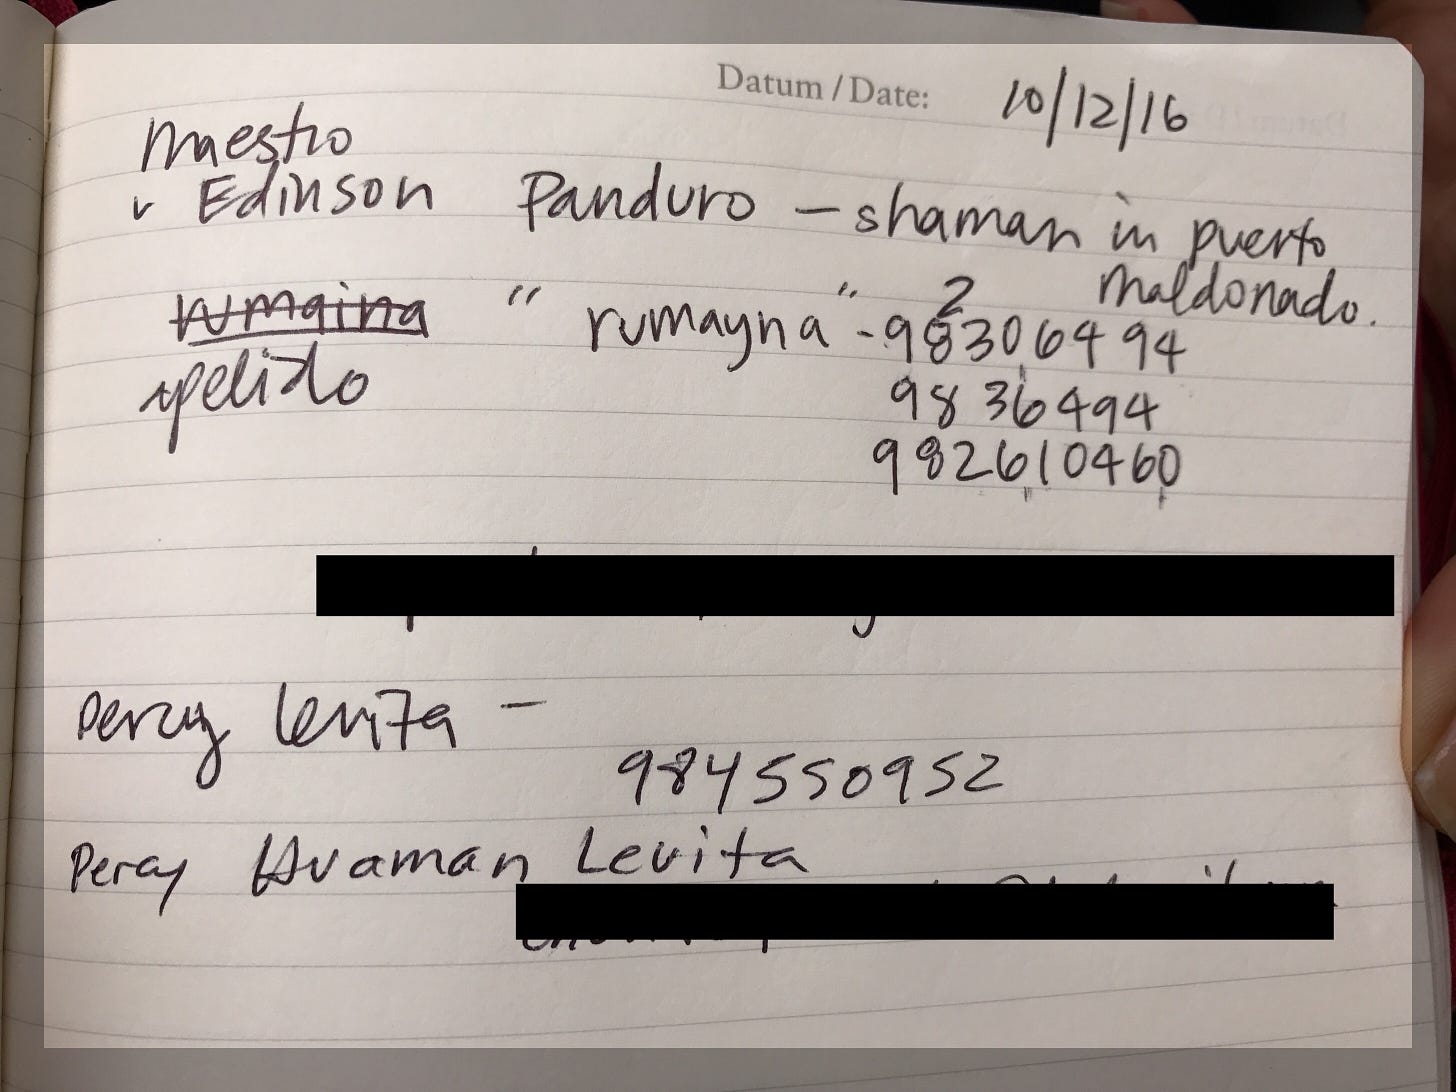 Datum / Date: 10/12/16
Maestro
Edinson Panduro - shaman in puerto
maldonado.
rumaina "rumayna" - 983306494
2
apelido
98 36494
982610460
Percy Levita -
984550952
Percy Huaman Levita